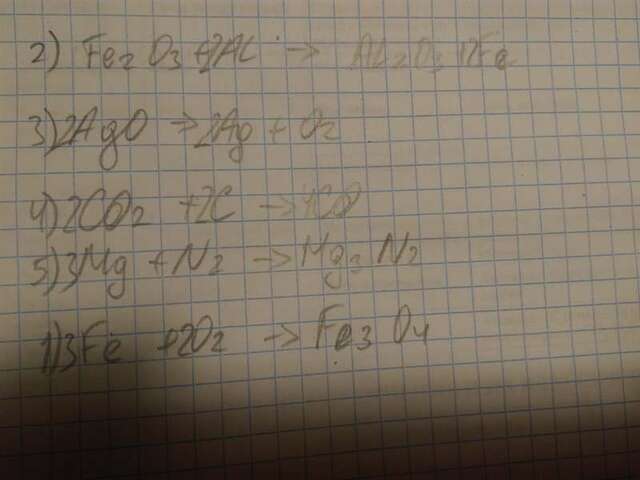 2) Fe₂O₃ + 2Al → Al₂O₃ + 2Fe
3) 2AgO → 2Ag + O₂
4) 2CO₂ + 2C → 4CO
5) 3Mg + N₂ → Mg₃N₂
1) 3Fe + 2O₂ → Fe₃O₄